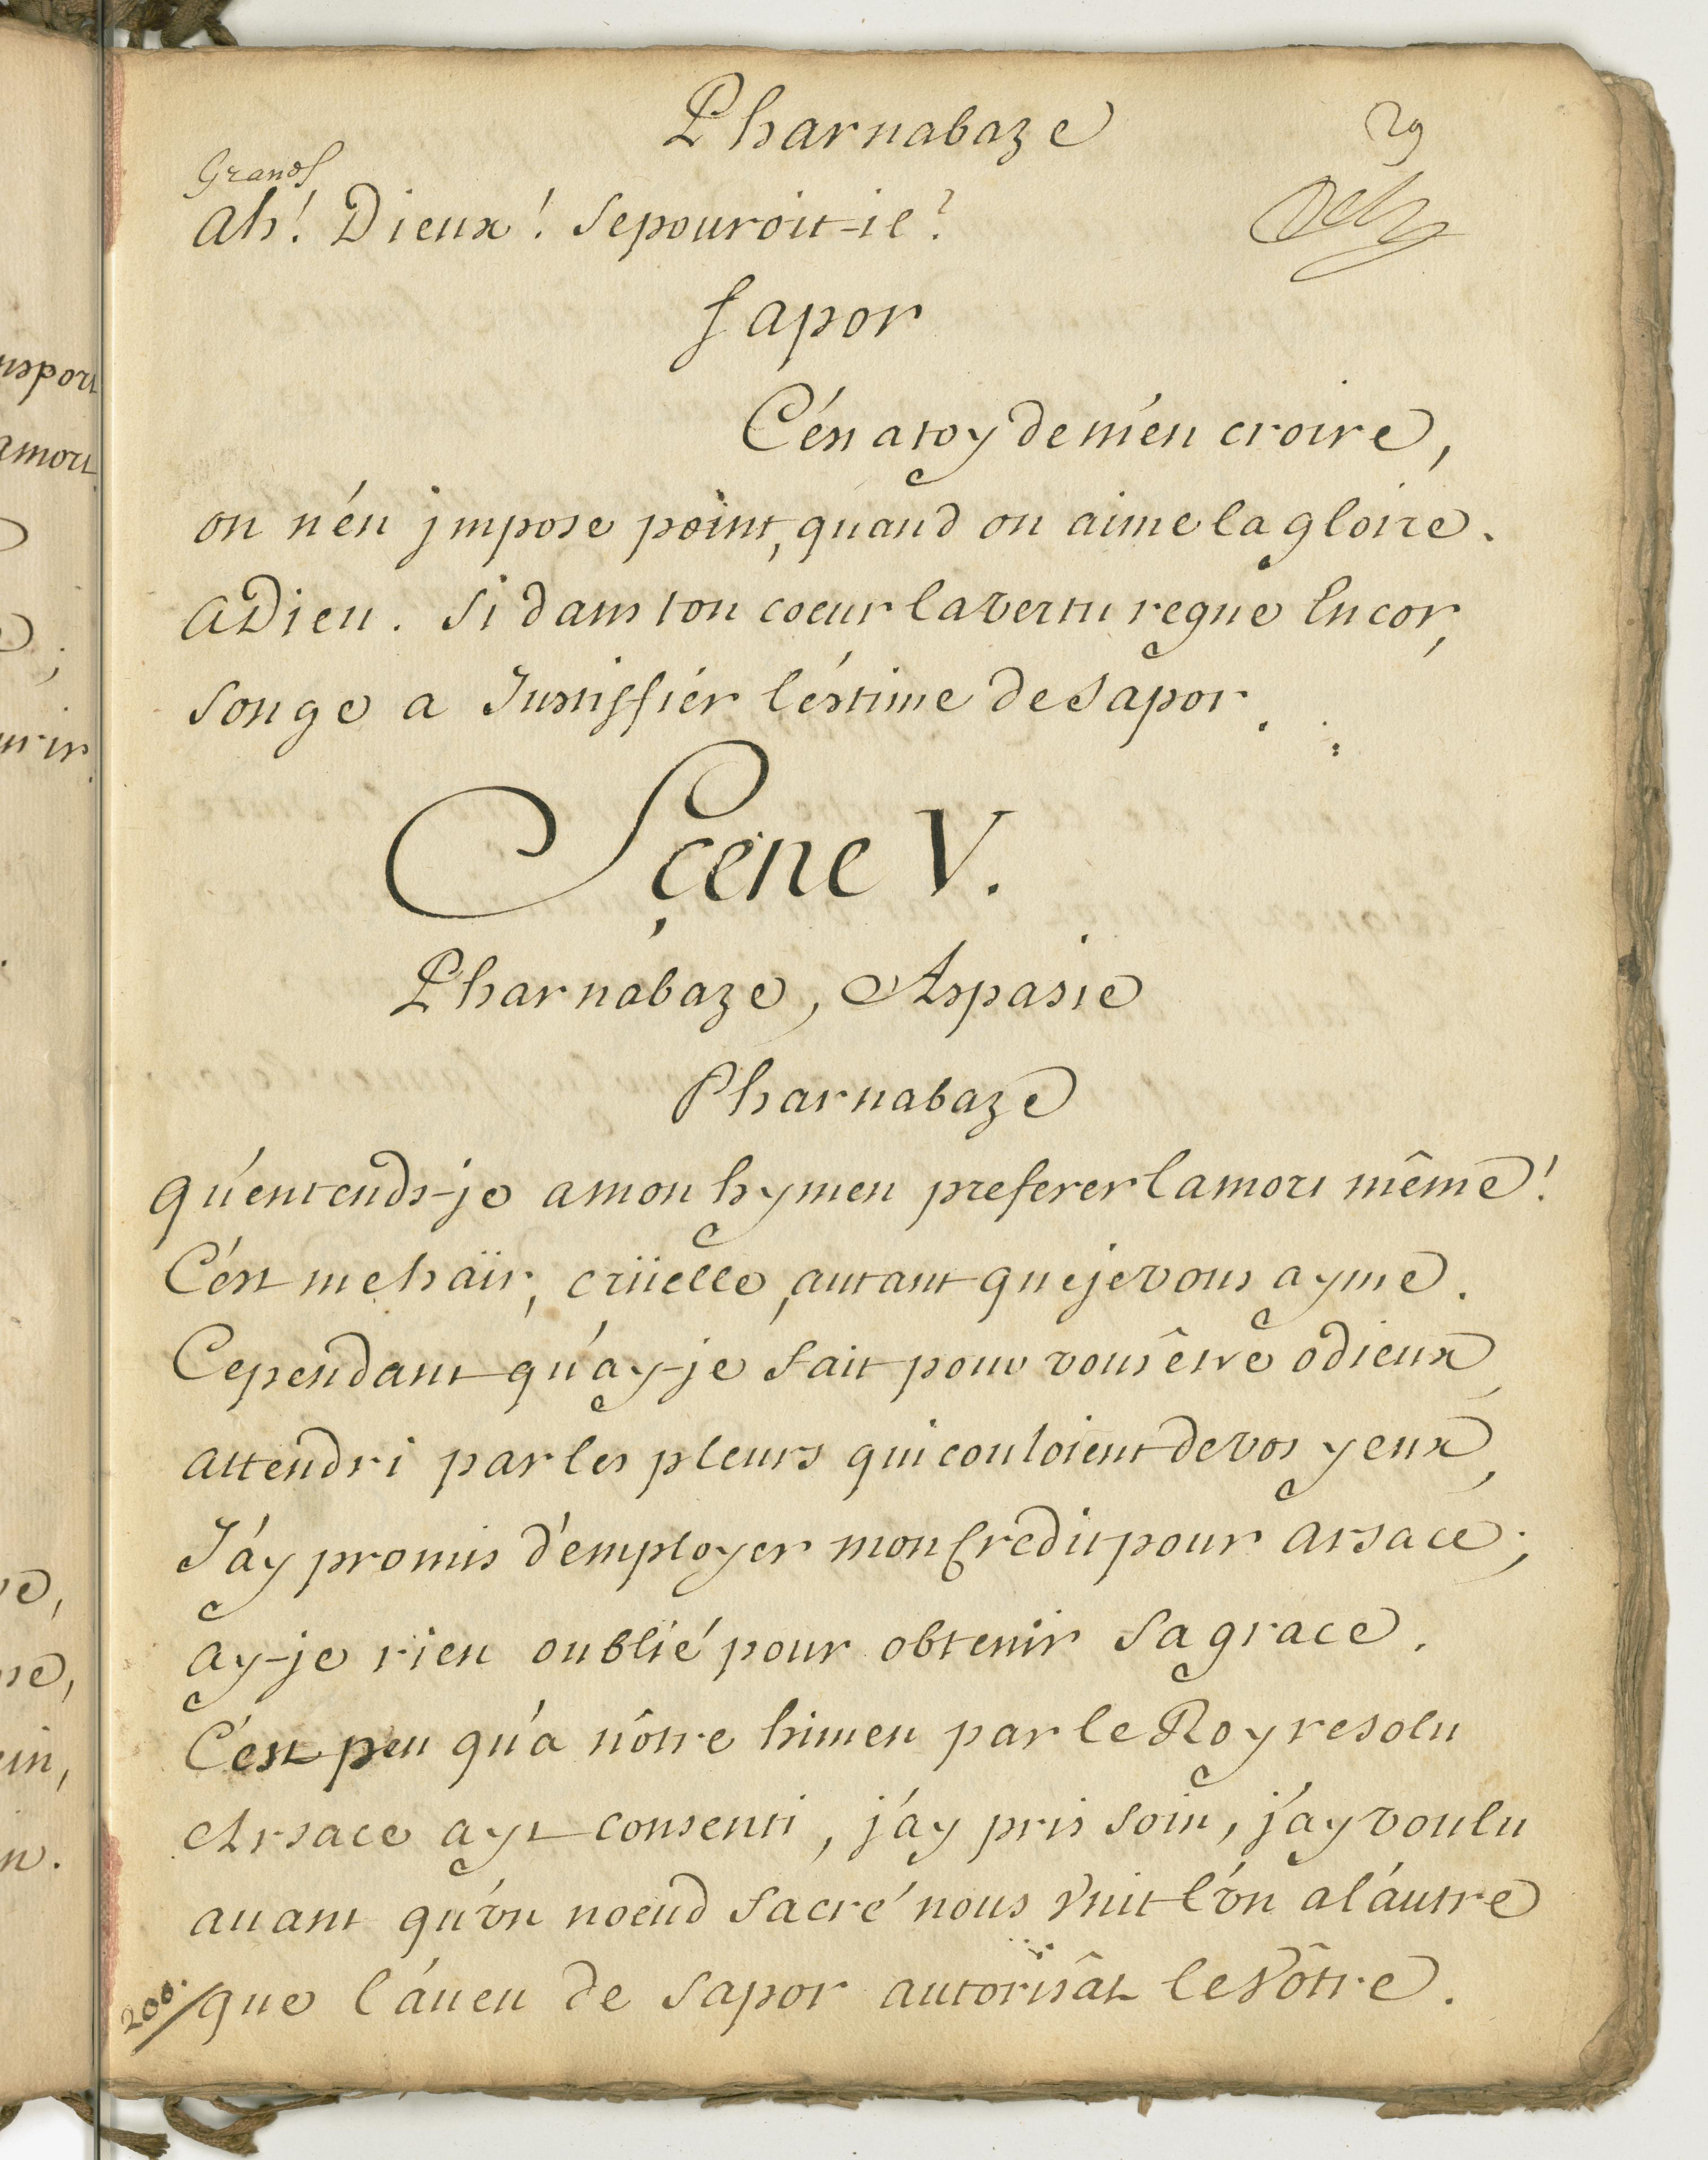 Pharnabaze
29
Grands
Ah! Dieux! Se pouroit-il?
Sapor
C'est a toy de m'en croire,
on n'en jmpose point, quand on aime la gloire.
ADieu. Si dans ton coeur la vertu regne Encor,
Songe a Justiffiér l'éstime de Sapor.
Sçene V.
Pharnabaze, Aspasie
Pharnabaze
qu'entends-je a mon hymen preferer la mort même!
C'est me haïr, crüelle, autant que je vous ayme.
Cependant qu'ay-je fait pour vous être ôdieux,
attendri par les pleurs qui couloient de vos yeux,
J'ay promis d'employer mon Credit pour arsace;
ay-je rien oublié pour obtenir Sa grace.
C'est peu qu'a nôtre himen par le Roy resolu
Arsace ayt consenti, j'ay pris Soin, j'ay voulu
auant qu'vn noeud Sacré nous Vnit l'vn a l'autre
que l'áueu de Sapor autorisât le Vôtre.
200.